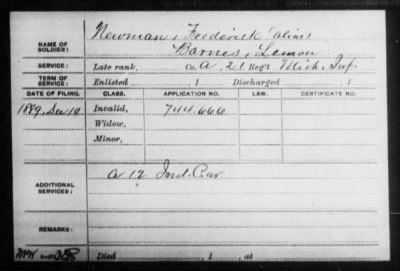 Newman, Frederick (alias)
NAME OF SOLDIER:
Barnes, Lemon
SERVICE: Late rank, Co. A, 21 Reg't Mich. Inf.
TERM OF SERVICE: Enlisted , 1 Discharged , 1
DATE OF FILING. CLASS. APPLICATION NO. LAW. CERTIFICATE NO.
1889, Dec 19 Invalid, 744.666
Widow,
Minor,
ADDITIONAL SERVICES: A 12 Ind. Cav
REMARKS:
Died , 1 , at